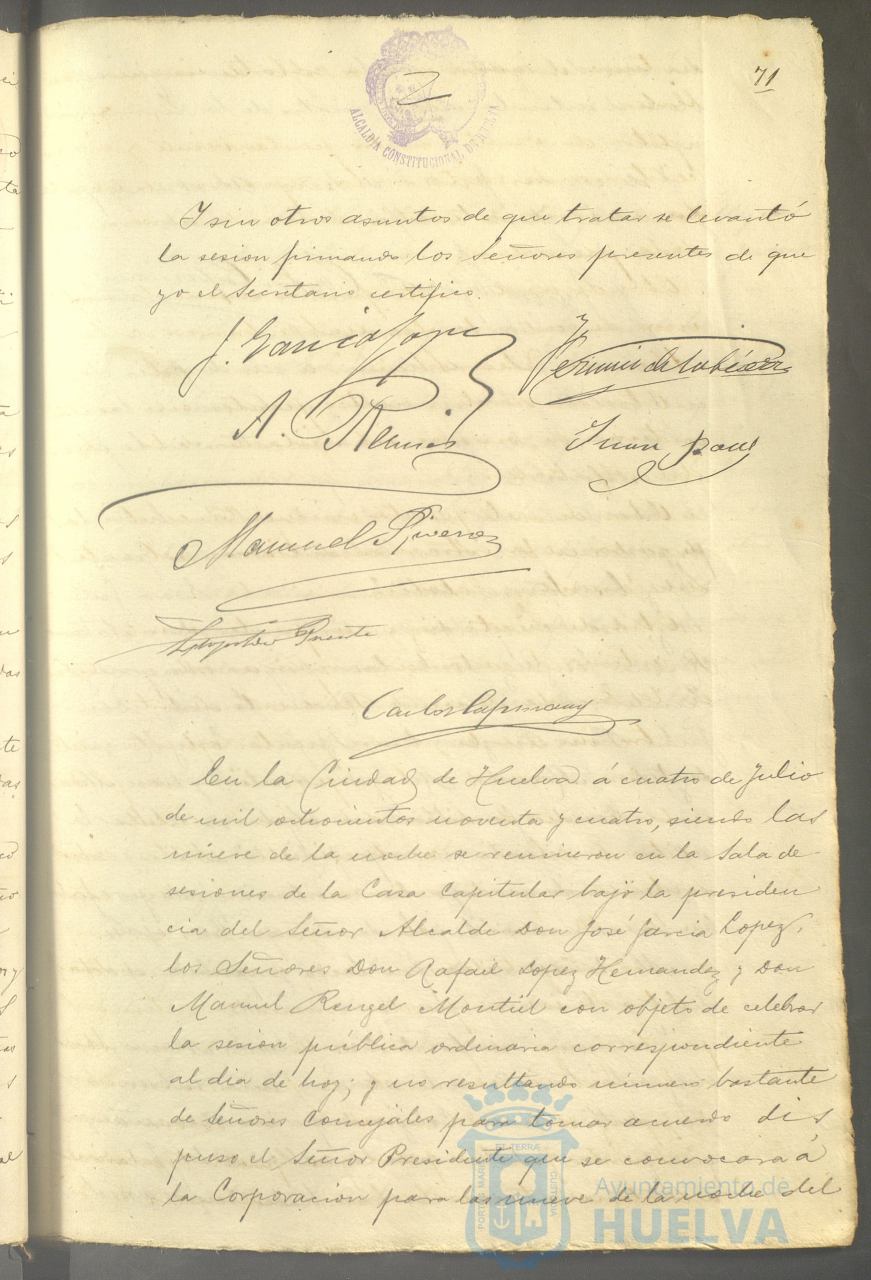 71
ALCALDÍA CONSTITUCIONAL DE HUELVA
Y sin otros asuntos de que tratar se levantó
la sesion firmando los Señores presentes de que
yo el Secretario certifico.
J. Garcia Lopez
A. Ramirez
Juan
Manuel Rivero
Puente
Carlos
En la Ciudad de Huelva á cuatro de Julio
de mil ochocientos noventa y cuatro, siendo las
nueve de la noche se reunieron en la Sala de
sesiones de la Casa Capitular bajo la presiden
cia del Señor Alcalde Don José Garcia Lopez,
los Señores Don Rafael Lopez Hernandez y Don
Manuel Rengel Montiel con objeto de celebrar
la sesion pública ordinaria correspondiente
al dia de hoy; y no resultando número bastante
de Señores Concejales para tomar acuerdo dis
puso el Señor Presidente que se convocara á
la Corporacion para las nueve de la noche del
PORTUS MARIS ET TERRÆ CUSTODIA
Ayuntamiento de
HUELVA